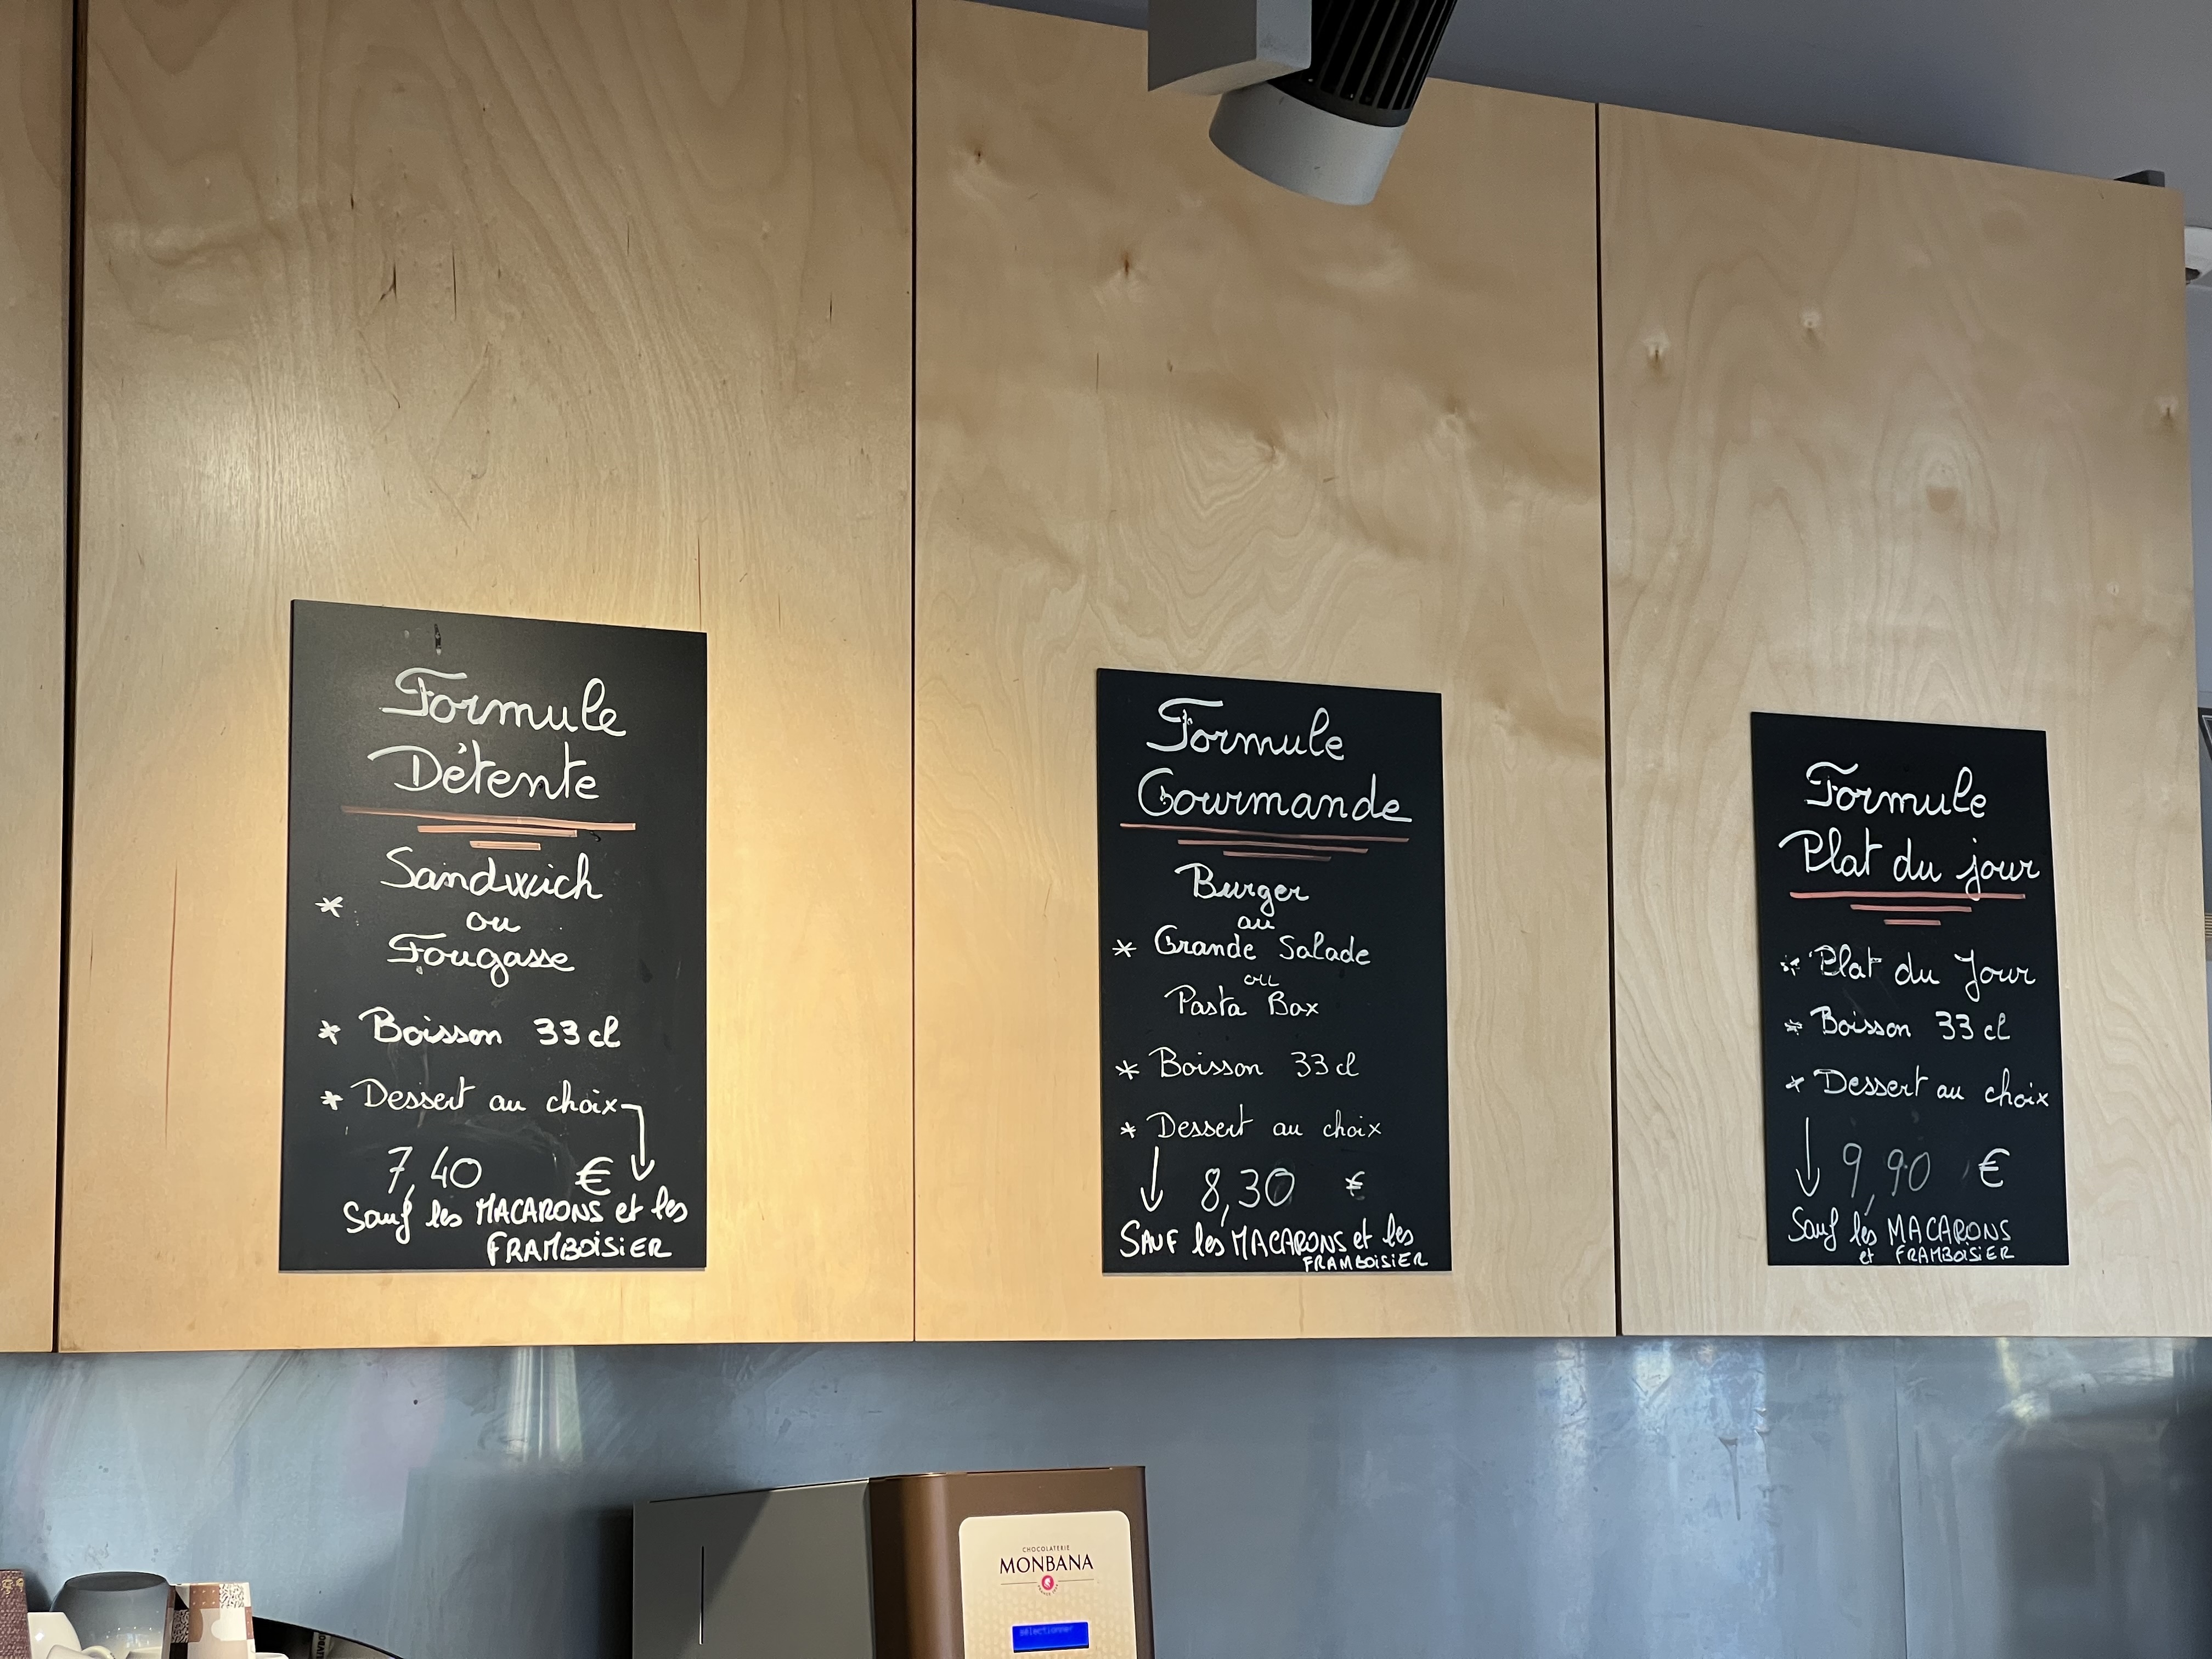 Formule
Détente
Sandwich
ou
Fougasse
* Boisson 33 cl
* Dessert au choix
7,40 €
Sauf les MACARONS et les
FRAMBOISIER
Formule
Gourmande
Burger
ou
* Grande Salade
ou
Pasta Box
* Boisson 33 cl
* Dessert au choix
8,30 €
SAUF les MACARONS et les
FRAMBOISIER
Formule
Plat du jour
* Plat du Jour
* Boisson 33 cl
* Dessert au choix
9,90 €
Sauf les MACARONS
et FRAMBOISIER
CHOCOLATERIE
MONBANA